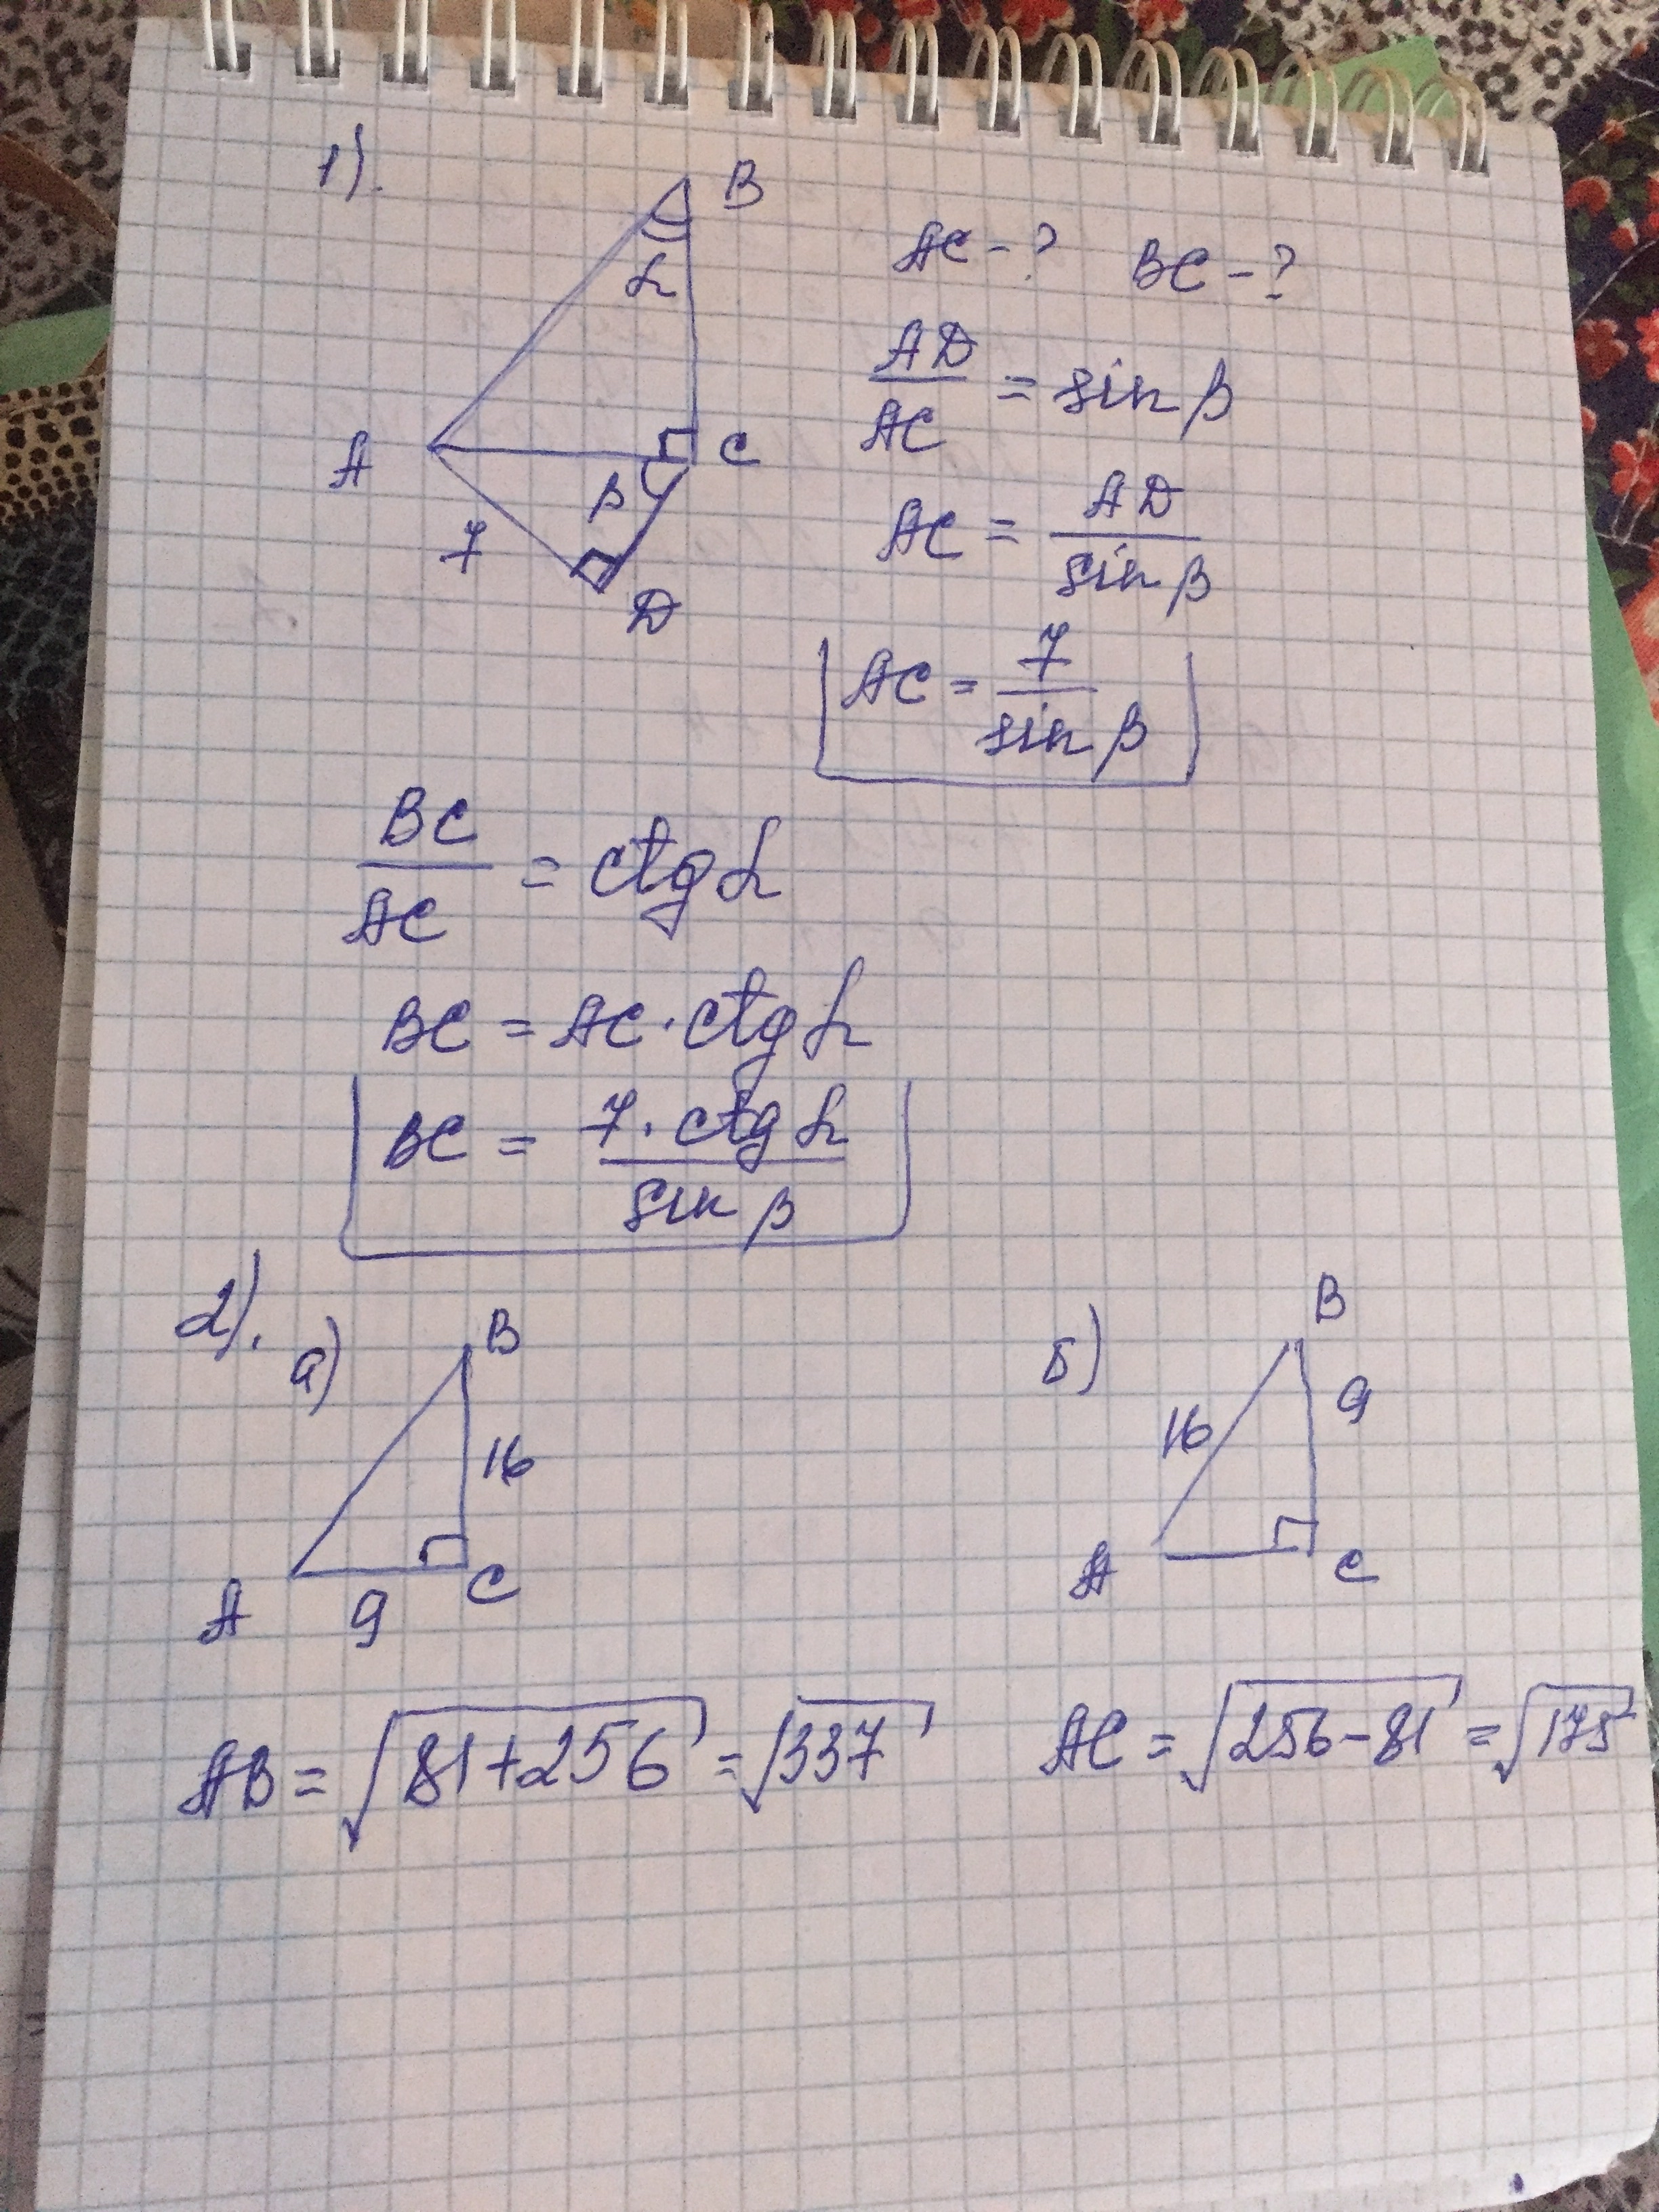 1).
B
α
A
C
β
7
D
AC - ? BC - ?
AD/AC = sin β
AC = AD/sin β
AC = 7/sin β
BC/AC = ctg α
BC = AC · ctg α
BC = 7 · ctg α/sin β
2).
а)
B
16
A
9
C
AB = √81+256 = √337
б)
B
16
9
A
C
AC = √256-81 = √175